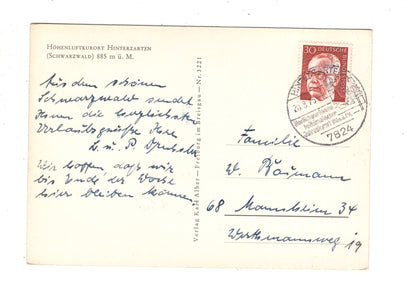 HÖHENLUFTKURORT HINTERZARTEN
(SCHWARZWALD) 885 m ü. M.
Aus dem schönen
Schwarzwald sendet
Ihnen die herzlichsten
Urlaubsgrüße Ihre
L. u. P.
Wir hoffen, dass wir
bis Ende der Woche
hier bleiben können.
Verlag Karl Alber - Freiburg im Breisgau - Nr. 3221
30 DEUTSCHE
7824
Familie
W. Baumann
68 Mannheim 34
Wertmannsweg 19